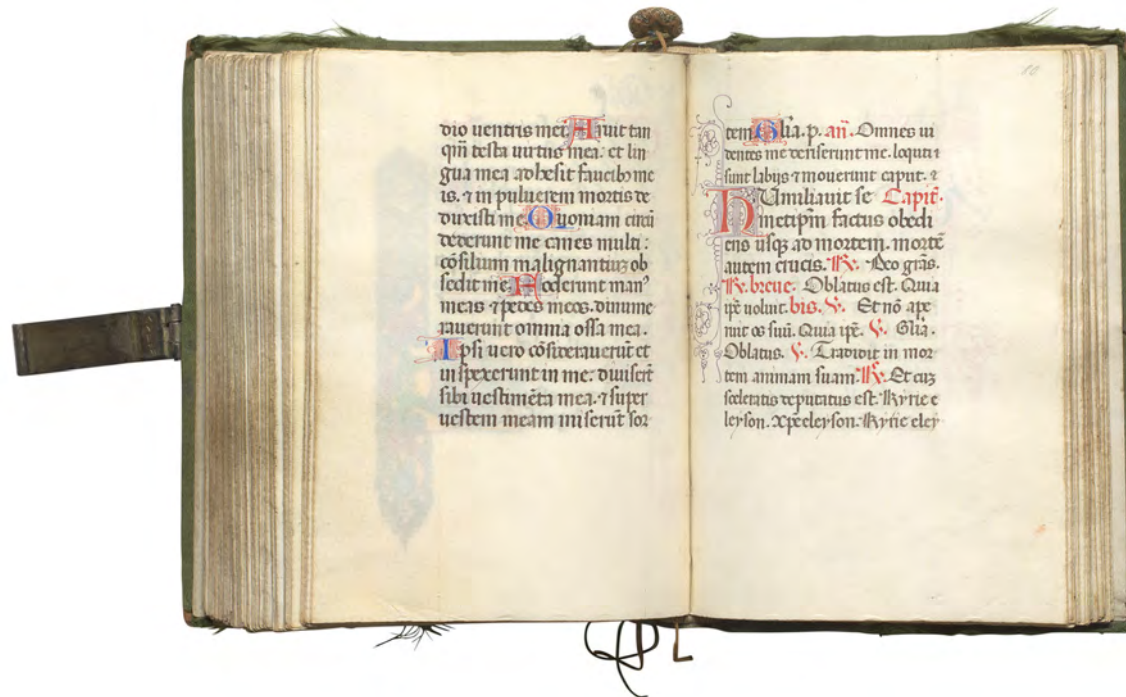 dio uentris mei. Aruit tan
qm̃ testa uirtus mea: et lin
gua mea adhesit faucibꝫ me
is. ⁊ in puluerem mortis de
duxisti me. Quoniam circũ
dederunt me canes multi:
cõsilium malignantiuꝫ ob
sedit me. Foderunt man⁹
meas ⁊ pedes meos. dinume
rauerunt omnia ossa mea.
Ipsi uero cõsiderauerũt et
inspexerunt in me: diuisert̃
sibi uestimẽta mea. ⁊ super
uestem meam miserũt sor
60
tem Glia. p. añ. Omnes ui
dentes me deriserunt me. loquti ⁊
sunt labijs ⁊ mouerunt caput. ⁊
HUmiliauit se Capitł.
metipm̃ factus obedi
ens usqꝫ ad mortem. mortẽ
autem crucis. ℟. Deo grãs.
℟. breue. Oblatus est. Quia
ip̃e uoluit. bis. ℣. Et nõ ape
ruit os suũ. Quia ip̃e. ℣. Glia.
Oblatus. ℣. Tradidit in mor
tem animam suam ℟. Et cuꝫ
sceleratis deputatus est. Kyrie e
leyson. xp̃e eleyson. Kyrie eley